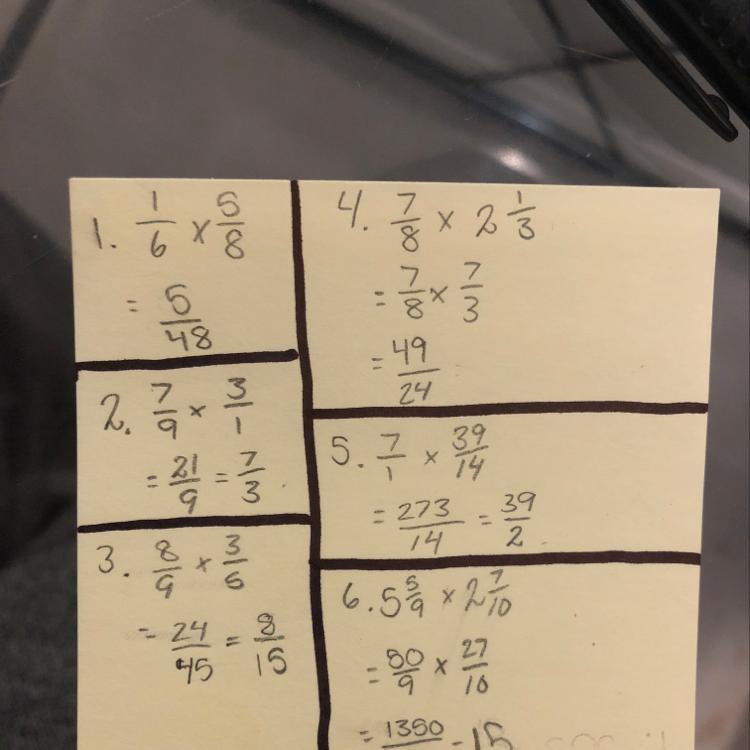 1. 1/6 × 5/8
= 5/48
2. 7/9 × 3/1
= 21/9 = 7/3
3. 8/9 × 3/5
= 24/45 = 8/15
4. 7/8 × 2 1/3
= 7/8 × 7/3
= 49/24
5. 7/1 × 39/14
= 273/14 = 39/2
6. 5 5/9 × 2 7/10
= 50/9 × 27/10
= 1350 = 15